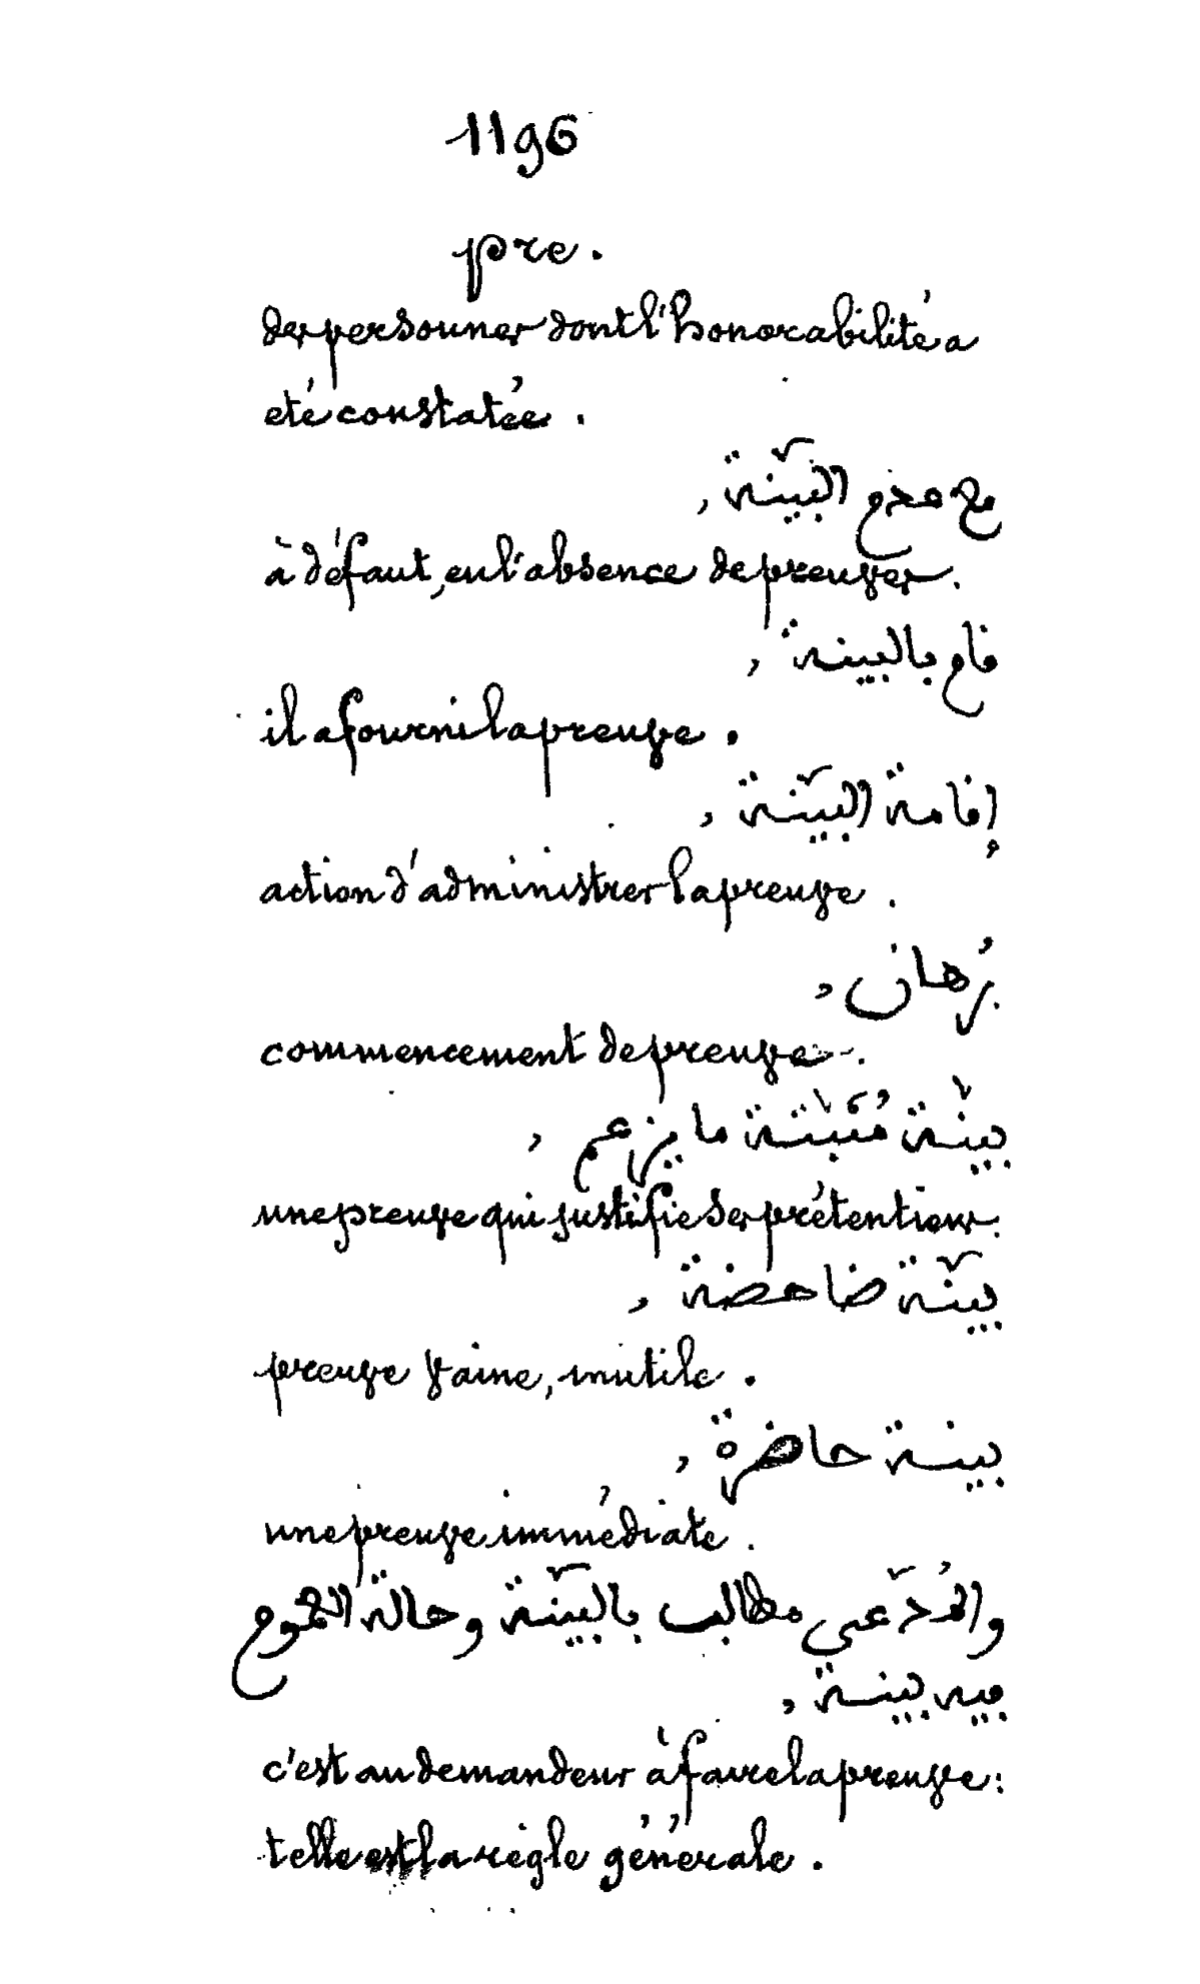 1196
pre.
des personnes dont l'honorabilité a
eté constatée.
مع عدم البيّنة,
à défaut, en l'absence de preuves.
قام بالبينة,
il a fourni la preuve.
إقامة البيّنة,
action d'administrer la preuve.
بُرهان,
commencement de preuve.
بينّة مُثبَتة ما يزعم,
une preuve qui justifie ses prétentions.
بيّنة ضاحضة,
preuve vaine, inutile.
بينة حاضرة,
une preuve immédiate.
والمُدّعى مطالب بالبيّنة وحالة
فيه بينة,
c'est au demandeur à faire la preuve:
telle est la règle générale.